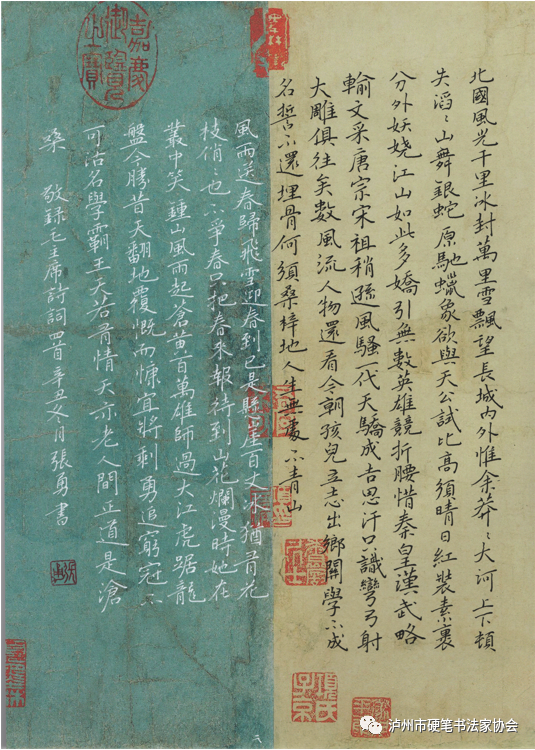 北國風光千里冰封萬里雪飄望長城內外惟余莽〻大河上下頓
失滔〻山舞銀蛇原馳蠟象欲與天公試比高須晴日紅裝素裹
分外妖嬈江山如此多嬌引無數英雄競折腰惜秦皇漢武略
輸文采唐宗宋祖稍遜風騷一代天驕成吉思汗只識彎弓射
大雕俱往矣數風流人物還看今朝孩兒立志出鄉關學不成
名誓不還埋骨何須桑梓地人生無處不青山
嘉慶御覽之寶
風雨送春歸飛雪迎春到已是懸崖百丈冰猶有花
枝俏〻也不爭春只把春來報待到山花爛漫時她在
叢中笑鍾山風雨起蒼黃百萬雄師過大江虎踞龍
盤今勝昔天翻地覆慨而慷宜將剩勇追窮寇不
可沽名學霸王天若有情天亦老人間正道是滄
桑 敬錄毛主席詩詞四首辛丑冬月張勇書
泸州市硬笔书法家协会